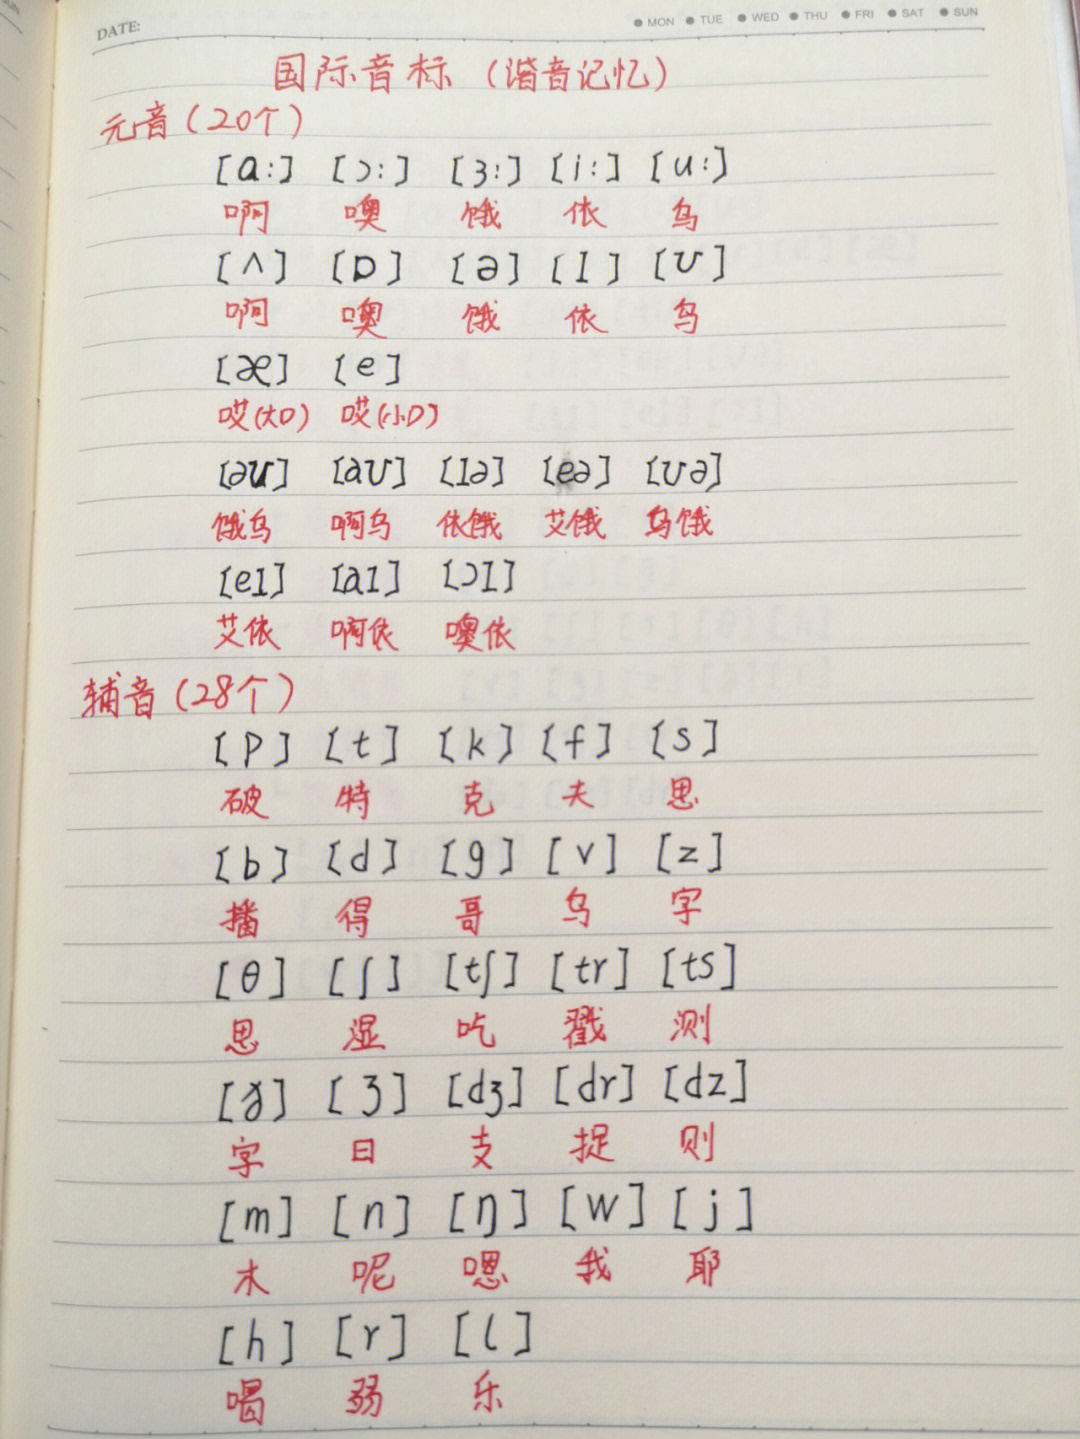 DATE: ● MON ● TUE ● WED ● THU ● FRI ● SAT ● SUN
国际音标（谐音记忆）
元音（20个）
[ɑ:] [ɔ:] [ɜ:] [i:] [u:]
啊 噢 饿 依 乌
[ʌ] [ɒ] [ə] [ɪ] [ʊ]
啊 噢 饿 依 乌
[æ] [e]
哎(大口) 哎(小口)
[əʊ] [aʊ] [ɪə] [eə] [ʊə]
饿乌 啊乌 依饿 艾饿 乌饿
[eɪ] [aɪ] [ɔɪ]
艾依 啊依 噢依
辅音（28个）
[p] [t] [k] [f] [s]
破 特 克 夫 思
[b] [d] [g] [v] [z]
播 得 哥 乌 字
[θ] [ʃ] [tʃ] [tr] [ts]
思 湿 吃 戳 测
[ð] [ʒ] [dʒ] [dr] [dz]
字 日 支 捉 则
[m] [n] [ŋ] [w] [j]
木 呢 嗯 我 耶
[h] [r] [l]
喝 弱 乐